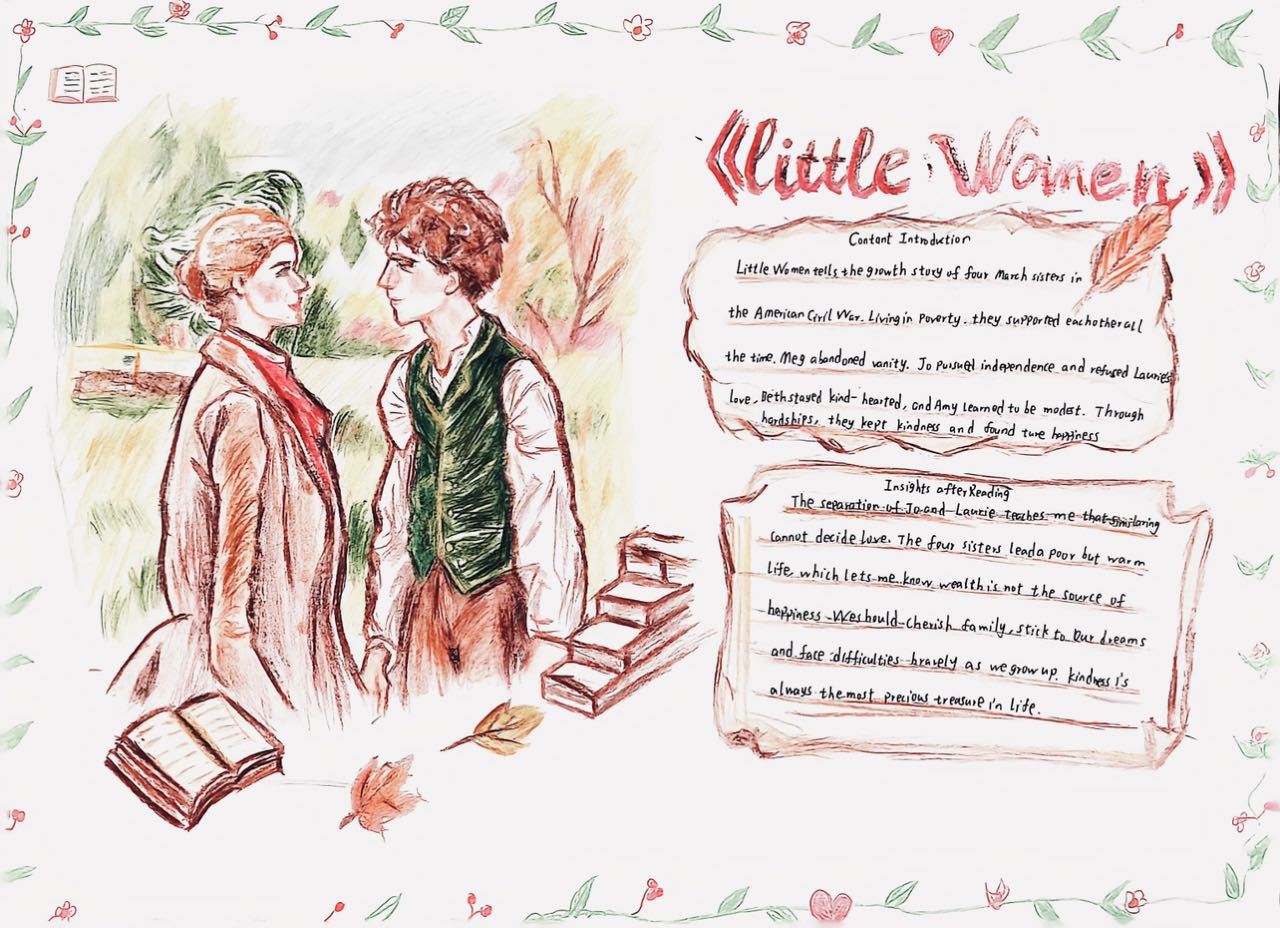 《little Women》
Contant Introduction
Little Women tells the growth story of four March sisters in
the American Civil War. Living in Poverty. they supported each other all
the time. Meg abandoned vanity. Jo pursued independence and refused Laurie's
love, Beth stayed kind-hearted, and Amy learned to be modest. Through
hardships, they kept kindness and found ture happiness
Insights after Reading
The separation of Jo and Laurie teaches me that
cannot decide love. The four sisters lead a poor but warm
life, which lets me know wealth is not the source of
happiness We should cherish family, stick to our dreams
and face difficulties bravely as we grow up. kindness is
always the most precious treasure in life.